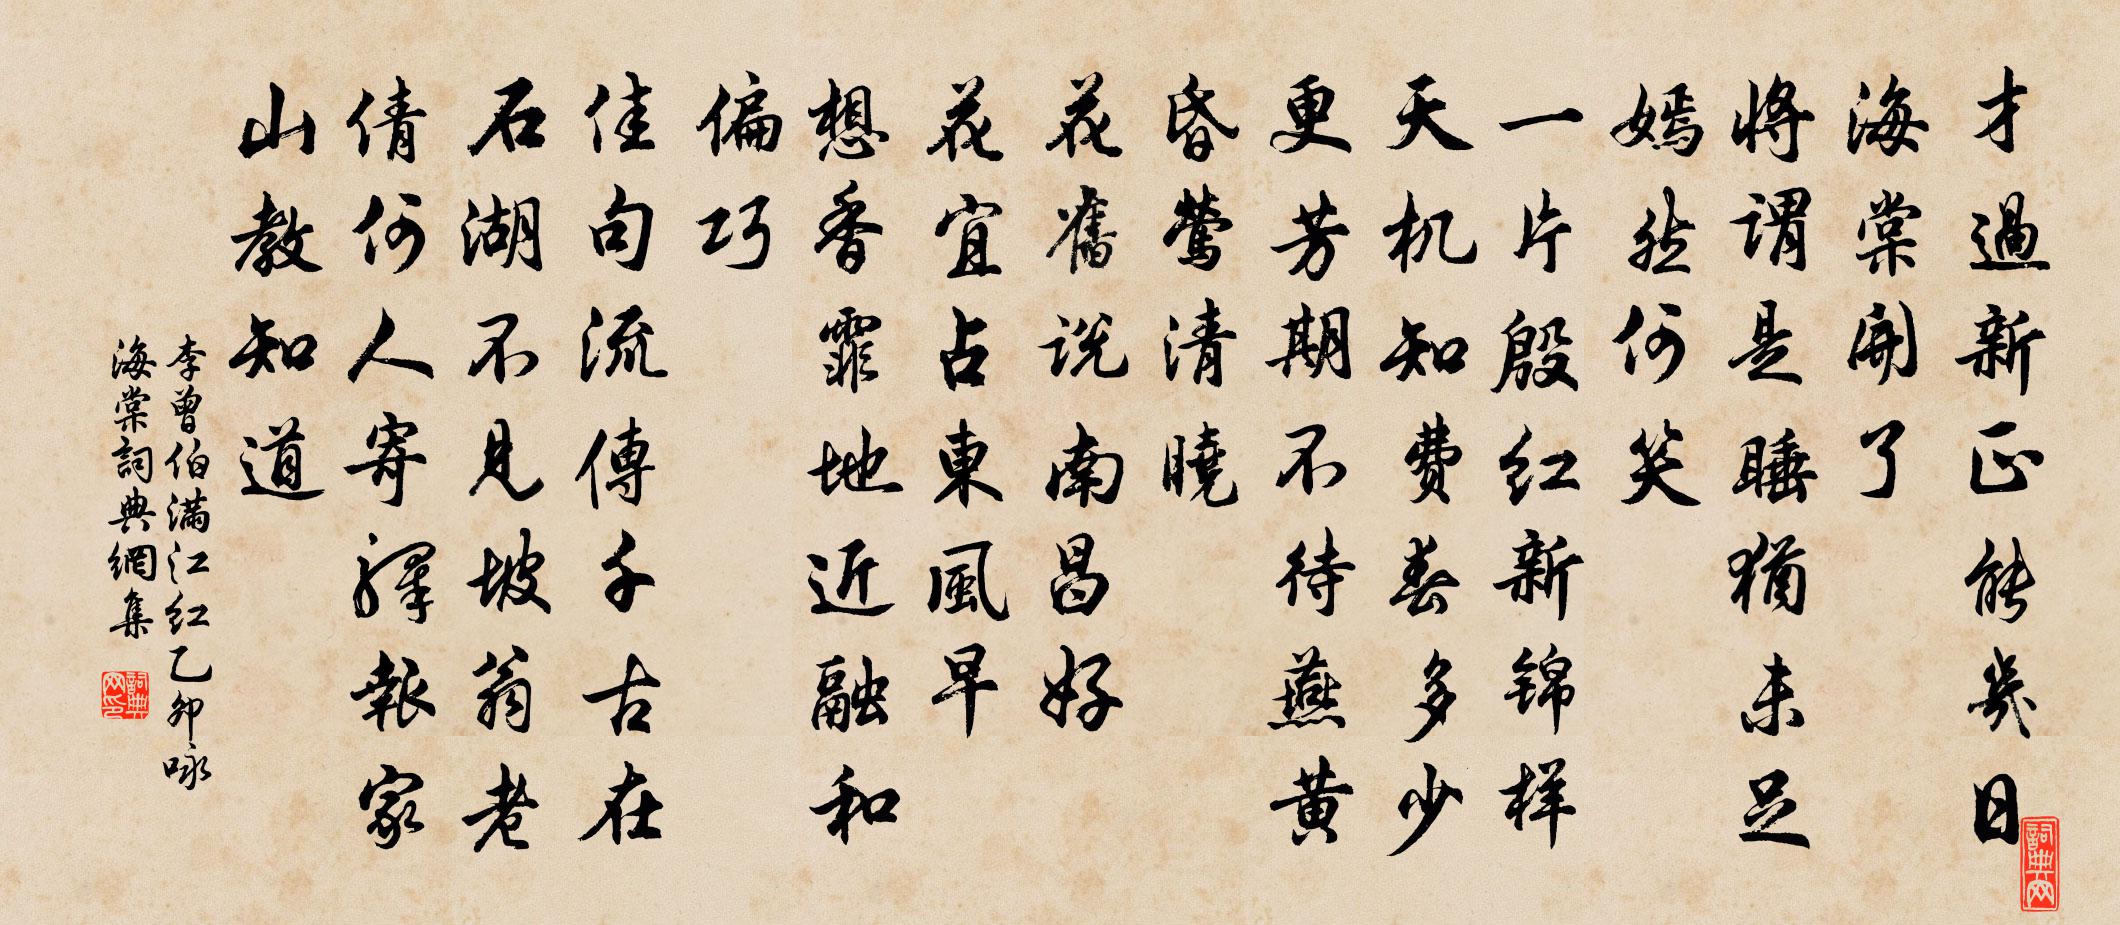 才過新正能幾日
海棠開了
将謂是睡猶未足
嫣然何笑
一片殷红新锦样
天机知費春多少
更芳期不待燕黄
昏鶯清曉
花舊说南昌好
花宜占東風早
想香霏地近融和
偏巧
佳句流傳千古在
石湖不見坡翁老
倩何人寄驛報家
山教知道
李曾伯满江红乙卯咏
海棠詞典網集
詞典网印
詞典网